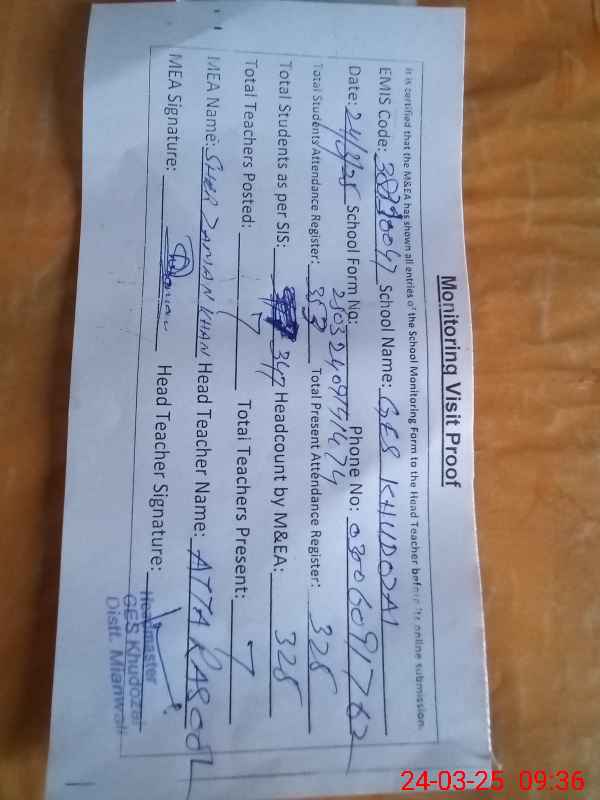 Monitoring Visit Proof
It is certified that the M&EA has shown all entries of the School Monitoring Form to the Head Teacher before its online submission.
EMIS Code: School Name: GES KHUDOZAI
Date: 24/3/25 School Form No: Phone No:
Total Students Attendance Register: 353 Total Present Attendance Register: 328
Total Students as per SIS: 347 Headcount by M&EA: 328
Total Teachers Posted: 7 Total Teachers Present: 7
MEA Name: SHER ZAMAN KHAN Head Teacher Name: ATTA RASOOL
MEA Signature: Head Teacher Signature:
Headmaster
GES Khudozai
Distt. Mianwali
24-03-25 09:36